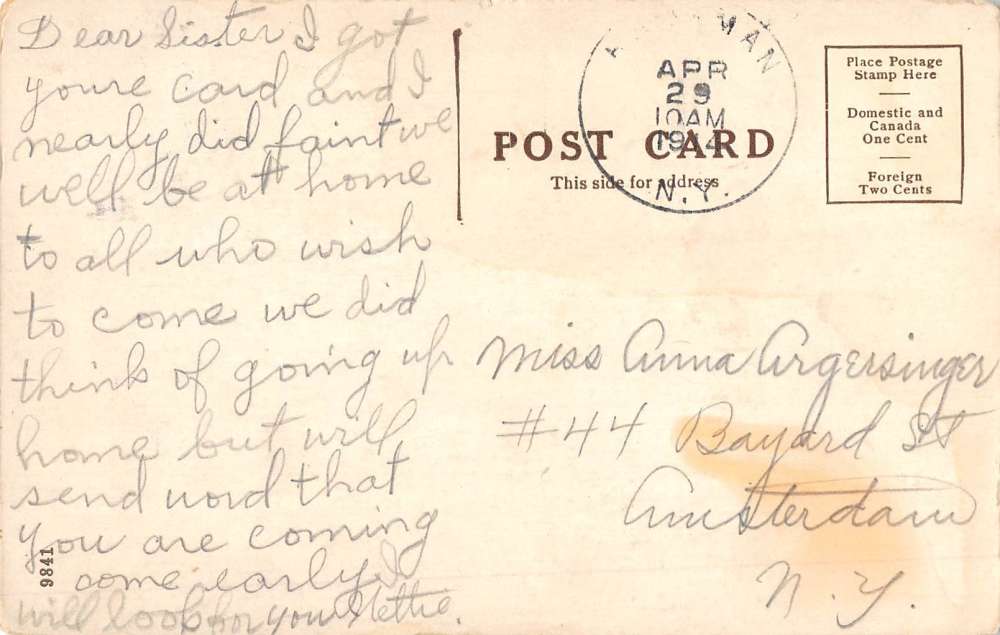 Dear Sister I got
youre card and I
nearly did faint we
well be at home
to all who wish
to come we did
think of going up
home but will
send word that
you are coming
come early I
will look for you Nettie.
9841
MAN
APR
29
10AM
1914
N.Y.
POST CARD
This side for address
Place Postage
Stamp Here
Domestic and
Canada
One Cent
Foreign
Two Cents
Miss Anna Argersinger
#44 Bayard St
Amsterdam
N. Y.